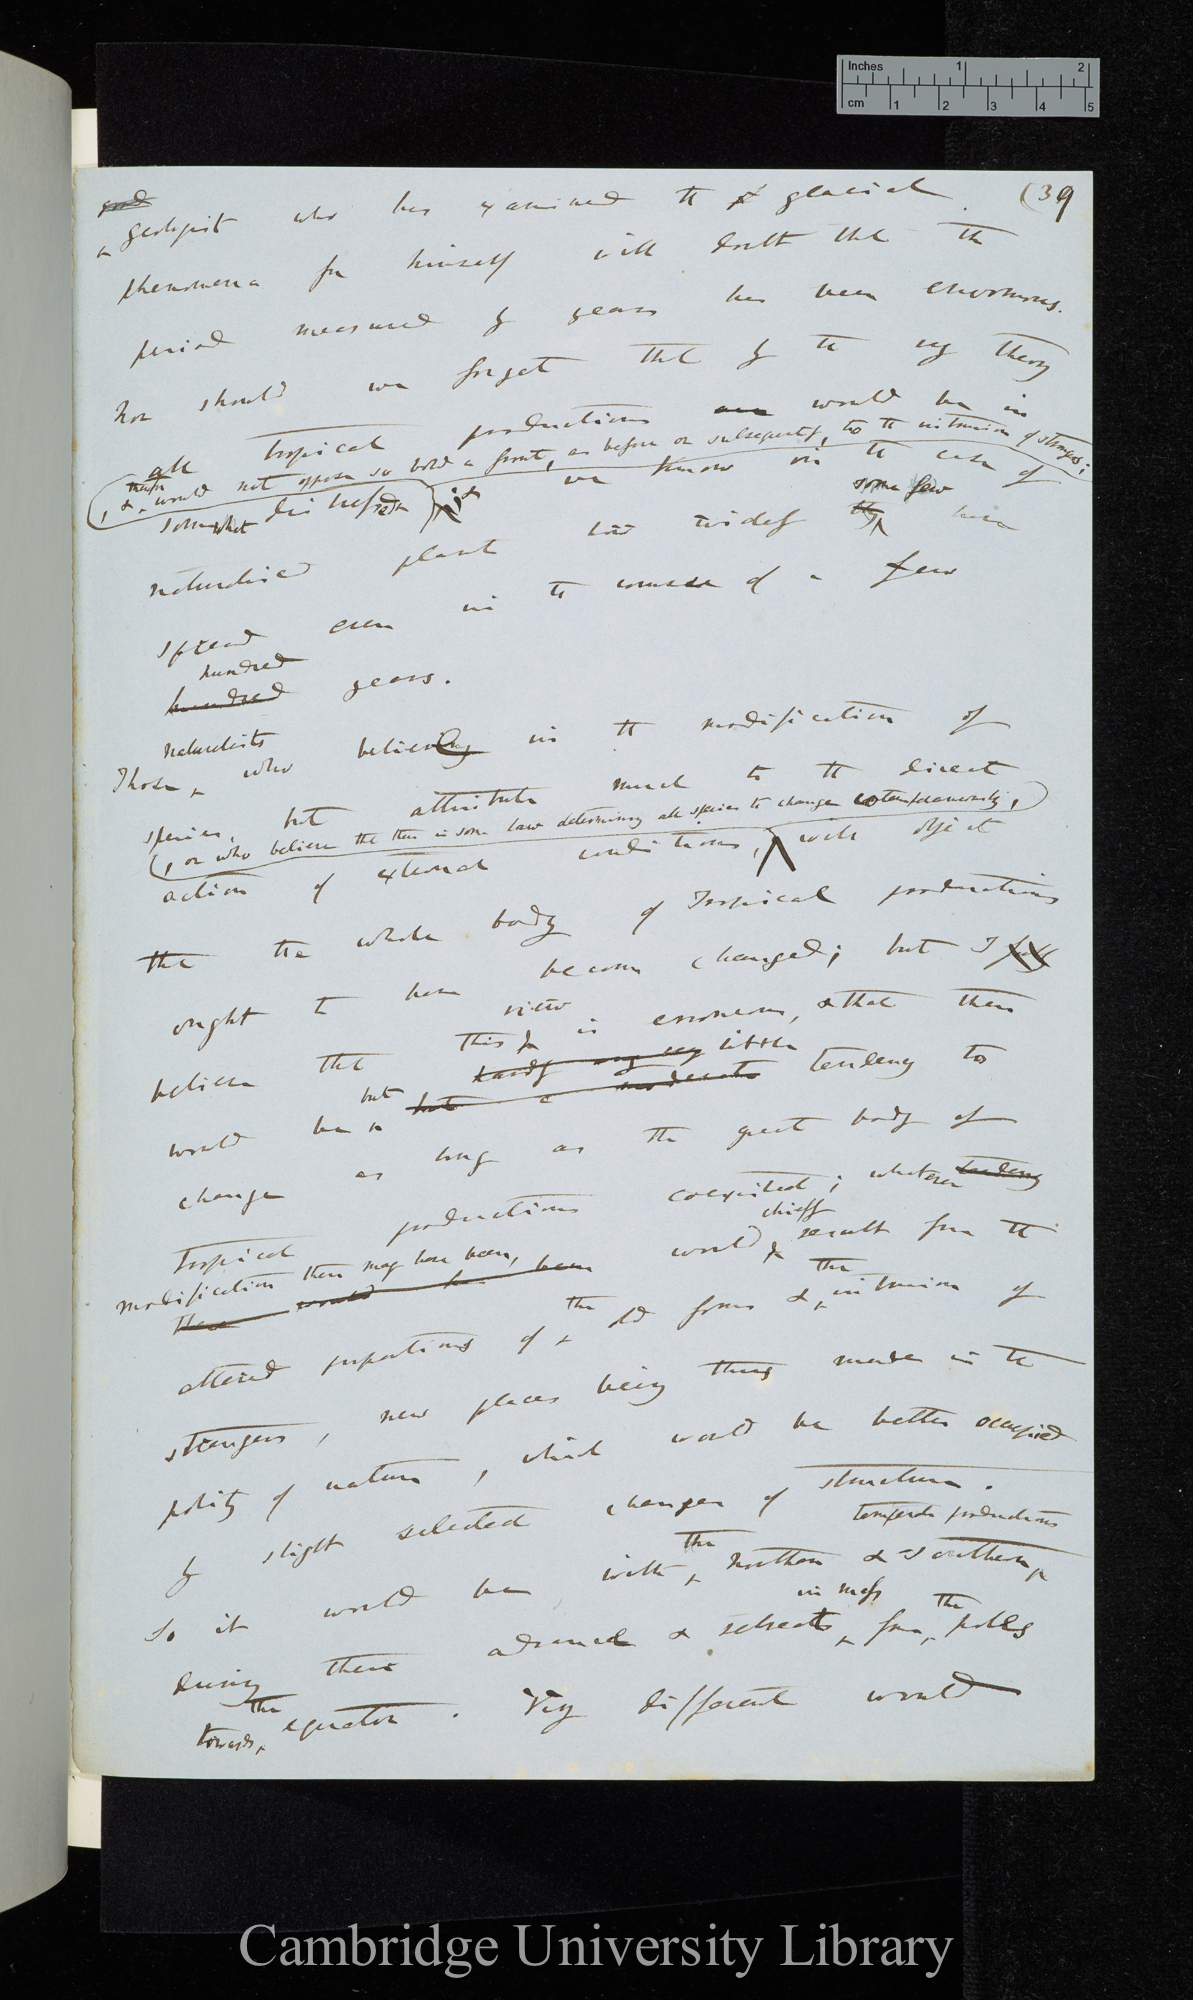 Inches 1 2
cm 1 2 3 4 5
(39
good
geologist who has examined the glacial
phenomena for himself will doubt that the
period measured by years has been enormous.
Nor should we forget that by the my theory
all tropical productions are would be in
, & therefore would not oppose so bold a front, as before or subsequently, to the intrusion of strangers;
somewhat distressed & we know in the case of
some few
naturalised plants how widely they have
spread even in the course of a few
hundred
hundred years.
naturalists
Those who believing in the modification of
species, but attribute much to the direct
, or who believe that there is some law determining all species to change contemporaneously,
action of external conditions, will object
that the whole body of Tropical productions
ought to have become changed; but I fully
believe that this view is erroneous, & that there
hardly any very little
would be but but a moderate tendency to
change as long as the great body of
tropical productions coexisted; whatever tendency
modification there may have been,
there would have been would chiefly result from the
altered proportions of the old forms & the intrusion of
strangers, new places being thus made in the
polity of nature, which would be better occupied
by slight selected changes of structure.
temperate productions
So it would be with the Northern & Southern
in mass
during their advance & retreat from the poles
towards the equator. Very different would
Cambridge University Library